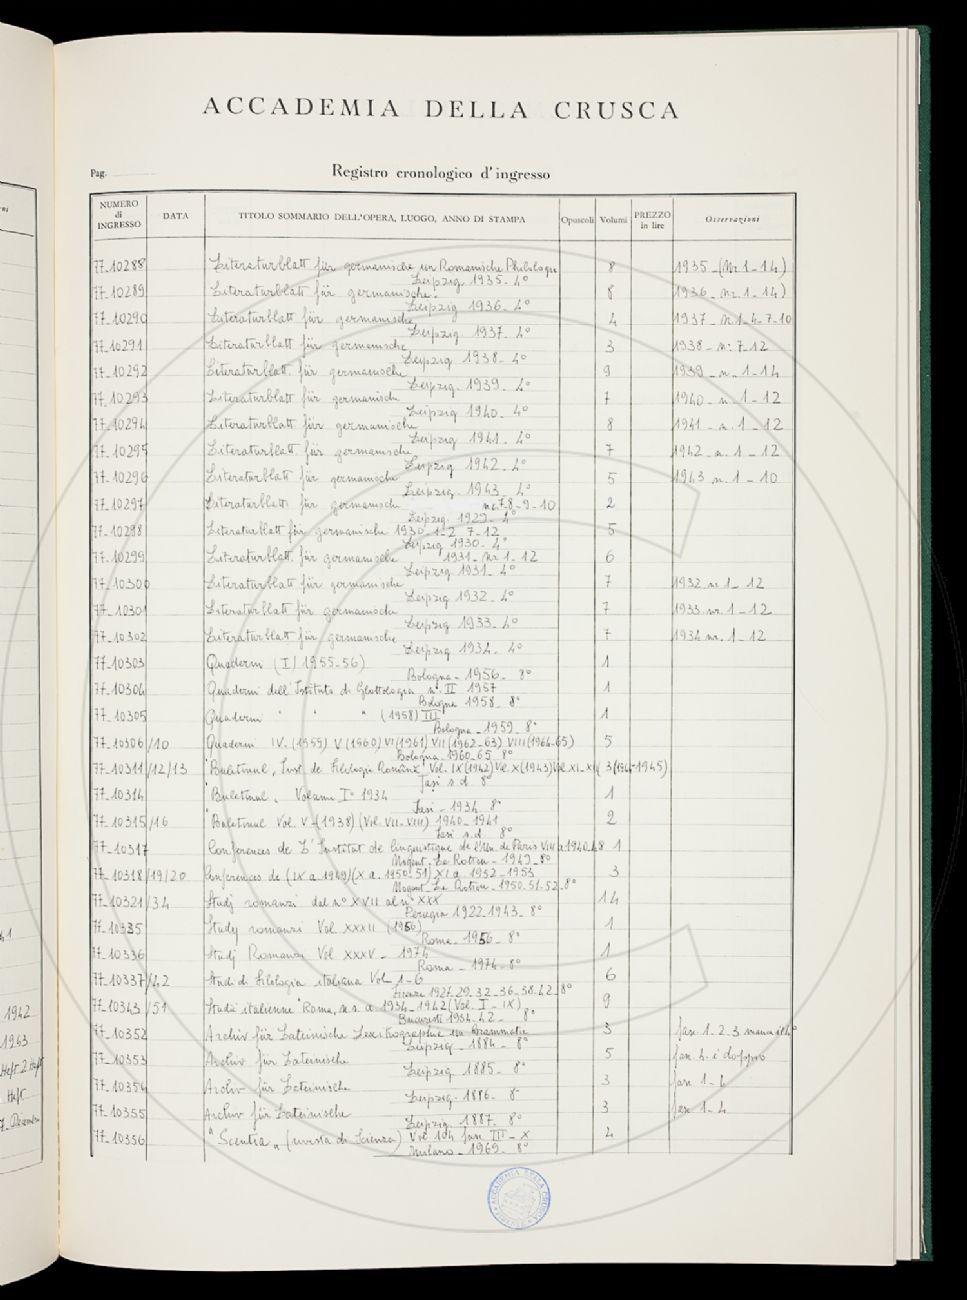 ACCADEMIA DELLA CRUSCA
Pag.
Registro cronologico d'ingresso
NUMERO di INGRESSO DATA TITOLO SOMMARIO DELL'OPERA, LUOGO, ANNO DI STAMPA Opuscoli Volumi PREZZO in lire Osservazioni
77-10288 Literaturblatt für germanische un Romanische Philologie 8 1935-(Nr. 1-14)
Leipzig 1935-4°
77-10289 Literaturblatt für germanische. 8 1936-nr. 1-14)
Leipzig 1936-4°
77-10290 Literaturblatt für germanische 4 1937-N. 1-4-7-10
Leipzig 1937-4°
77-10291 Literaturblatt für germanische 3 1938-n. 7-12
Leipzig 1938-4°
77-10292 Literaturblatt für germanische 9 1939-n. 1-14
Leipzig. 1939-4°
77-10293 Literaturblatt für germanische 7 1940-n. 1-12
Leipzig 1940-4°
77-10294 Literaturblatt für germanische 8 1941-n. 1-12
Leipzig 1941-4°
77-10295 Literaturblatt für germanische 7 1942-n. 1-12
Leipzig 1942-4°
77-10296 Literaturblatt für germanische 5 1943 n. 1-10
Leipzig. 1943-4°
77-10297 Literaturblatt für germanisch nr. 7-8-9-10 2
Leipzig. 1929-4°
77-10298 Literaturblatt für germanische 1930 1-2 7-12 5
Leipzig 1930-4°
77-10299 Literaturblatt für germanische 1931-Nr 1-12 6
Leipzig 1931-4°
77-10300 Literaturblatt für germanische 7 1932 nr 1-12
Leipzig 1932-4°
77-10301 Literaturblatt für germanische 7 1933 nr. 1-12
Leipzig 1933-4°
77-10302 Literaturblatt für germanische 7 1934 nr. 1-12
Leipzig 1934-4°
77-10303 Quaderni (I) 1955-56) 1
Bologna-1956-8°
77-10304 Quaderni dell'Istituto di Glottologia n°. II 1957 1
Bologna 1958-8°
77-10305 Quaderni " " " (1958) III 1
Bologna-1959-8°
77-10306/10 Quaderni IV-(1959) V (1960) VI (1961) VII (1962-63) VIII (1964-65) 5
Bologna 1960-65 8°
77-10311/12/13 Buletinul, Inst. de Filologie Română Vol. IX (1942) Vol. X (1943) Vol XI-XII 3 (1944-1945)
Jasi s.d. 8°
77-10314 "Buletinul, Volume I° 1934 1
Jasi-1934 8°
77-10315/16 "Buletinul Vol. V-(1938) (Vol. VII-VIII) 1940-1941 2
Jasi s.d. 8°
77-10317 Conférences de L'Institut de linguistique de l'Un. de Paris VIII a 1940-48 1
Nogent-Le Rotrou-1949-8°
77-10318/19/20 Conférences de (IX a 1949) (X a. 1950-51) XI a. 1952-1953 3
Nogent-Le Rotrou-1950-51-52-8°
77-10321/34 Studj romanzi dal n° XVII al n° XXX 14
Perugia 1922-1943-8°
77-10335 Studj romanzi Vol XXXII (1956) 1
Roma-1956-8°
77-10336 Studj Romanzi Vol XXXV-1974 1
Roma-1974-8°
77-10337/42 Studi di Filologia italiana Vol 1-6 6
Firenze 1927-29-32-36-38-42-8°
77-10343/51 Studii italiene 1934-1942 (Vol. I-IX) 9
Bucuresti 1934-42-8°
77-10352 Archiv für Lateinische Lexikographie un Grammatic 3 fas. 1. 2. 3 manca il 4°
Leipzig-1884-8°
77-10353 Archiv für Lateinische 5 fas. 4. è doppio
Leipzig 1885-8°
77-10354 Archiv für Lateinische 3 fas. 1-4
Leipzig-1886-8°
77-10355 Archiv für Lateinische 3 fas. 1-4
Leipzig-1887-8°
77-10356 "Scentia" (rivista di Scienza) Vol 104 fas. III-X 4
Milano-1969-8°
ACCADEMIA DELLA CRUSCA
41
1942
1943
Heft